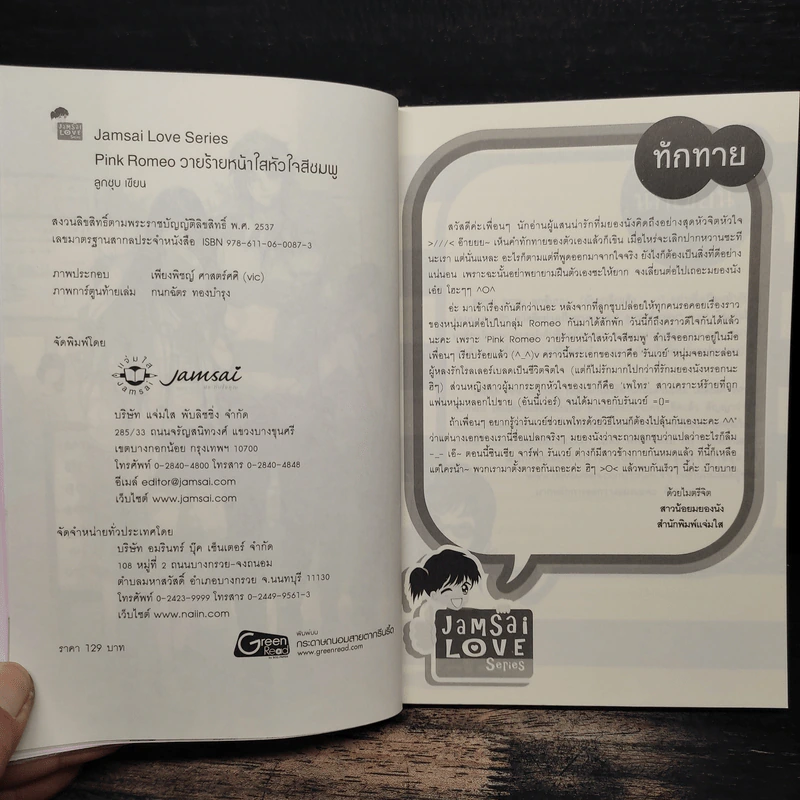 JAMSAI
LOVE
Series
Jamsai Love Series
Pink Romeo วายร้ายหน้าใสหัวใจสีชมพู
ลูกชุบ เขียน
สงวนลิขสิทธิ์ตามพระราชบัญญัติลิขสิทธิ์ พ.ศ. 2537
เลขมาตรฐานสากลประจำหนังสือ ISBN 978-611-06-0087-3
ภาพประกอบ เพียงพิชญ์ ศาสตร์ศศิ (vic)
ภาพการ์ตูนท้ายเล่ม กนกฉัตร ทองบำรุง
จัดพิมพ์โดย
แจ่มใส
Jamsai
Jamsai
บริษัท แจ่มใส พับลิชชิ่ง จำกัด
285/33 ถนนจรัญสนิทวงศ์ แขวงบางขุนศรี
เขตบางกอกน้อย กรุงเทพฯ 10700
โทรศัพท์ 0-2840-4800 โทรสาร 0-2840-4848
อีเมล์ editor@jamsai.com
เว็บไซต์ www.jamsai.com
จัดจำหน่ายทั่วประเทศโดย
บริษัท อมรินทร์ บุ๊ค เซ็นเตอร์ จำกัด
108 หมู่ที่ 2 ถนนบางกรวย-จงถนอม
ตำบลมหาสวัสดิ์ อำเภอบางกรวย จ.นนทบุรี 11130
โทรศัพท์ 0-2423-9999 โทรสาร 0-2449-9561-3
เว็บไซต์ www.naiin.com
ราคา 129 บาท
Green
Read
พิมพ์บน
กระดาษถนอมสายตากรีนรี้ด
www.greenread.com
ทักทาย
สวัสดีค่ะเพื่อนๆ นักอ่านผู้แสนน่ารักที่มยองนังคิดถึงอย่างสุดหัวจิตหัวใจ
>///< อ๊ายยย~ เห็นคำทักทายของตัวเองแล้วก็เขิน เมื่อไหร่จะเลิกปากหวานซะที
นะเรา แต่นั่นแหละ อะไรก็ตามแต่ที่พูดออกมาจากใจจริง ยังไงก็ต้องเป็นสิ่งที่ดีอย่าง
แน่นอน เพราะฉะนั้นอย่าพยายามฝืนตัวเองซะให้ยาก จงเลี่ยนต่อไปเถอะมยองนัง
เอ๋ย โฮะๆๆ ^O^
อ่ะ มาเข้าเรื่องกันดีกว่าเนอะ หลังจากที่ลูกชุบปล่อยให้ทุกคนรอคอยเรื่องราว
ของหนุ่มคนต่อไปในกลุ่ม Romeo กันมาได้สักพัก วันนี้ก็ถึงคราวดีใจกันได้แล้ว
นะคะ เพราะ 'Pink Romeo วายร้ายหน้าใสหัวใจสีชมพู' สำเร็จออกมาอยู่ในมือ
เพื่อนๆ เรียบร้อยแล้ว (^_^)v คราวนี้พระเอกของเราคือ 'รันเวย์' หนุ่มจอมกะล่อน
ผู้หลงรักโรลเลอร์เบลดเป็นชีวิตจิตใจ (แต่ก็ไม่รักมากไปกว่าที่รักมยองนังหรอกนะ
ฮิๆ) ส่วนหญิงสาวผู้มากระตุกหัวใจของเขาก็คือ 'เพไทร' สาวเคราะห์ร้ายที่ถูก
แฟนหนุ่มหลอกไปขาย (อันนี้เว่อร์) จนได้มาเจอกับรันเวย์ =()=
ถ้าเพื่อนๆ อยากรู้ว่ารันเวย์ช่วยเพไทรด้วยวิธีไหนก็ต้องไปลุ้นกันเองนะคะ ^^"
ว่าแต่นางเอกของเรานี่ชื่อแปลกจริงๆ มยองนังว่าจะถามลูกชุบว่าแปลว่าอะไรก็ลืม
-_- เอ๊~ ตอนนี้ซินเซีย จาร์ฟา รันเวย์ ต่างก็มีสาวข้างกายกันหมดแล้ว ทีนี้ก็เหลือ
แต่ใครน้า~ พวกเรามาตั้งตารอกันเถอะค่ะ ฮิๆ >O< แล้วพบกันเร็วๆ นี้ค่ะ บ๊ายบาย
ด้วยไมตรีจิต
สาวน้อยมยองนัง
สำนักพิมพ์แจ่มใส
JAMSAI
LOVE
Series